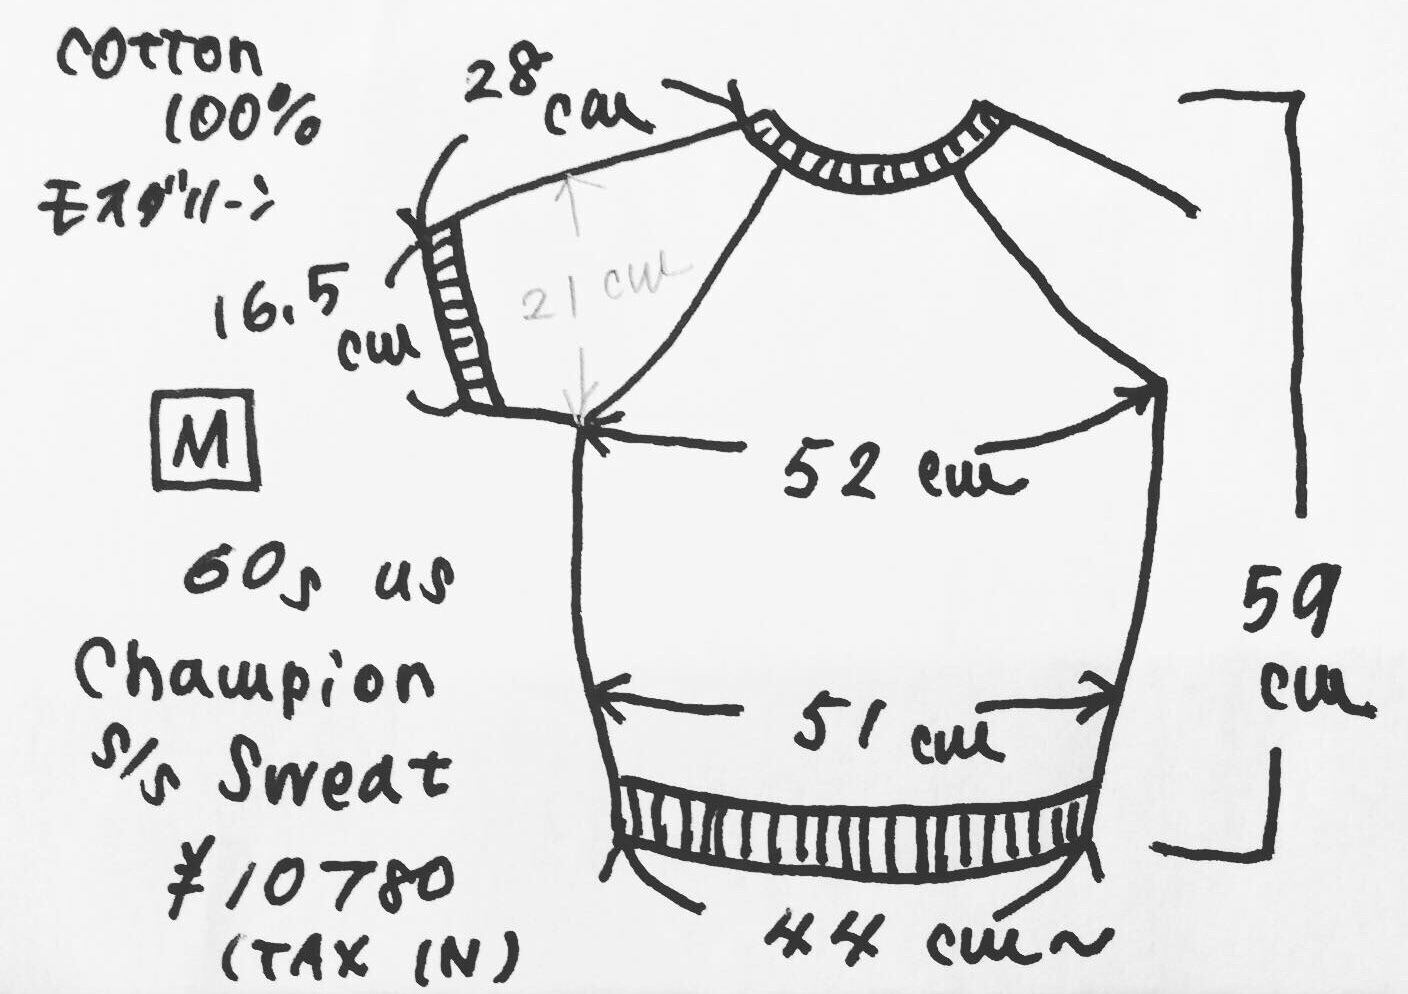 cotton
100%
モスグリーン
28
cm
16.5
cm
21 cm
M
52 cm
60s us
Champion
s/s Sweat
¥10780
(TAX IN)
51 cm
59
cm
44 cm~